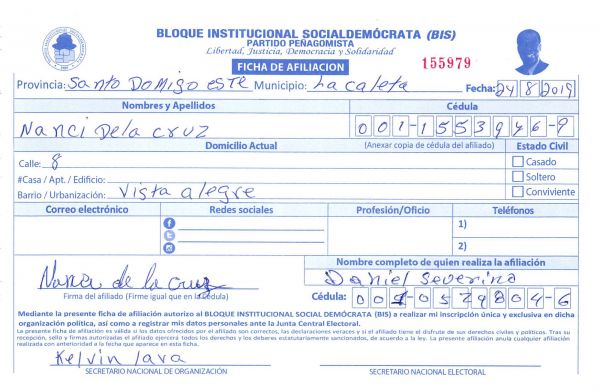 BLOQUE INSTITUCIONAL SOCIALDEMÓCRATA (BIS)
PARTIDO PEÑAGOMISTA
Libertad, Justicia, Democracia y Solidaridad
FICHA DE AFILIACION
155979
Provincia: Santo Domigo este Municipio: La caleta Fecha: 24/8/2019
Nombres y Apellidos Cédula
Nanci Dela cruz 001-1553946-9
Domicilio Actual (Anexar copia de cédula del afiliado) Estado Civil
Calle: 8 Casado
#Casa / Apt. / Edificio: Soltero
Barrio / Urbanización: Vista alegre Conviviente
Correo electrónico Redes sociales Profesión/Oficio Teléfonos
1)
2)
Nombre completo de quien realiza la afiliación
Nanci de la cruz Daniel Severino
Firma del afiliado (Firme igual que en la Cédula) Cédula: 001-0529804-6
Mediante la presente ficha de afiliación autorizo al BLOQUE INSTITUCIONAL SOCIAL DEMÓCRATA (BIS) a realizar mi inscripción única y exclusiva en dicha
organización política, así como a registrar mis datos personales ante la Junta Central Electoral.
La presente ficha de afiliación es válida si los datos ofrecidos por el afiliado son correctos, las declaraciones veraces y si el afiliado tiene el disfrute de sus derechos civiles y políticos. Tras su
recepción, sello y firmas autorizadas el afiliado ejercerá todos los derechos y los deberes estatutariamente sancionados, de acuerdo a la ley. La presente afiliación anula cualquier afiliación
realizada con anterioridad a la fecha que aparece en esta ficha.
Kelvin lara
SECRETARIO NACIONAL DE ORGANIZACIÓN SECRETARIO NACIONAL ELECTORAL